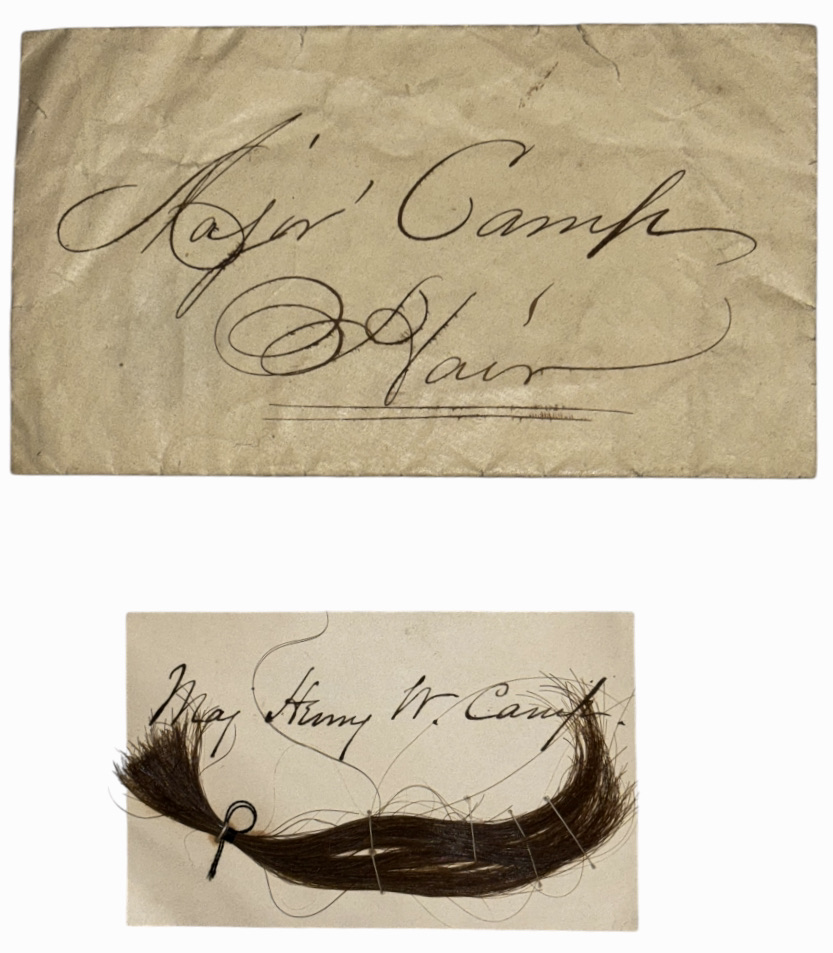 Major Camp
Hair
Maj Henry W. Camp.